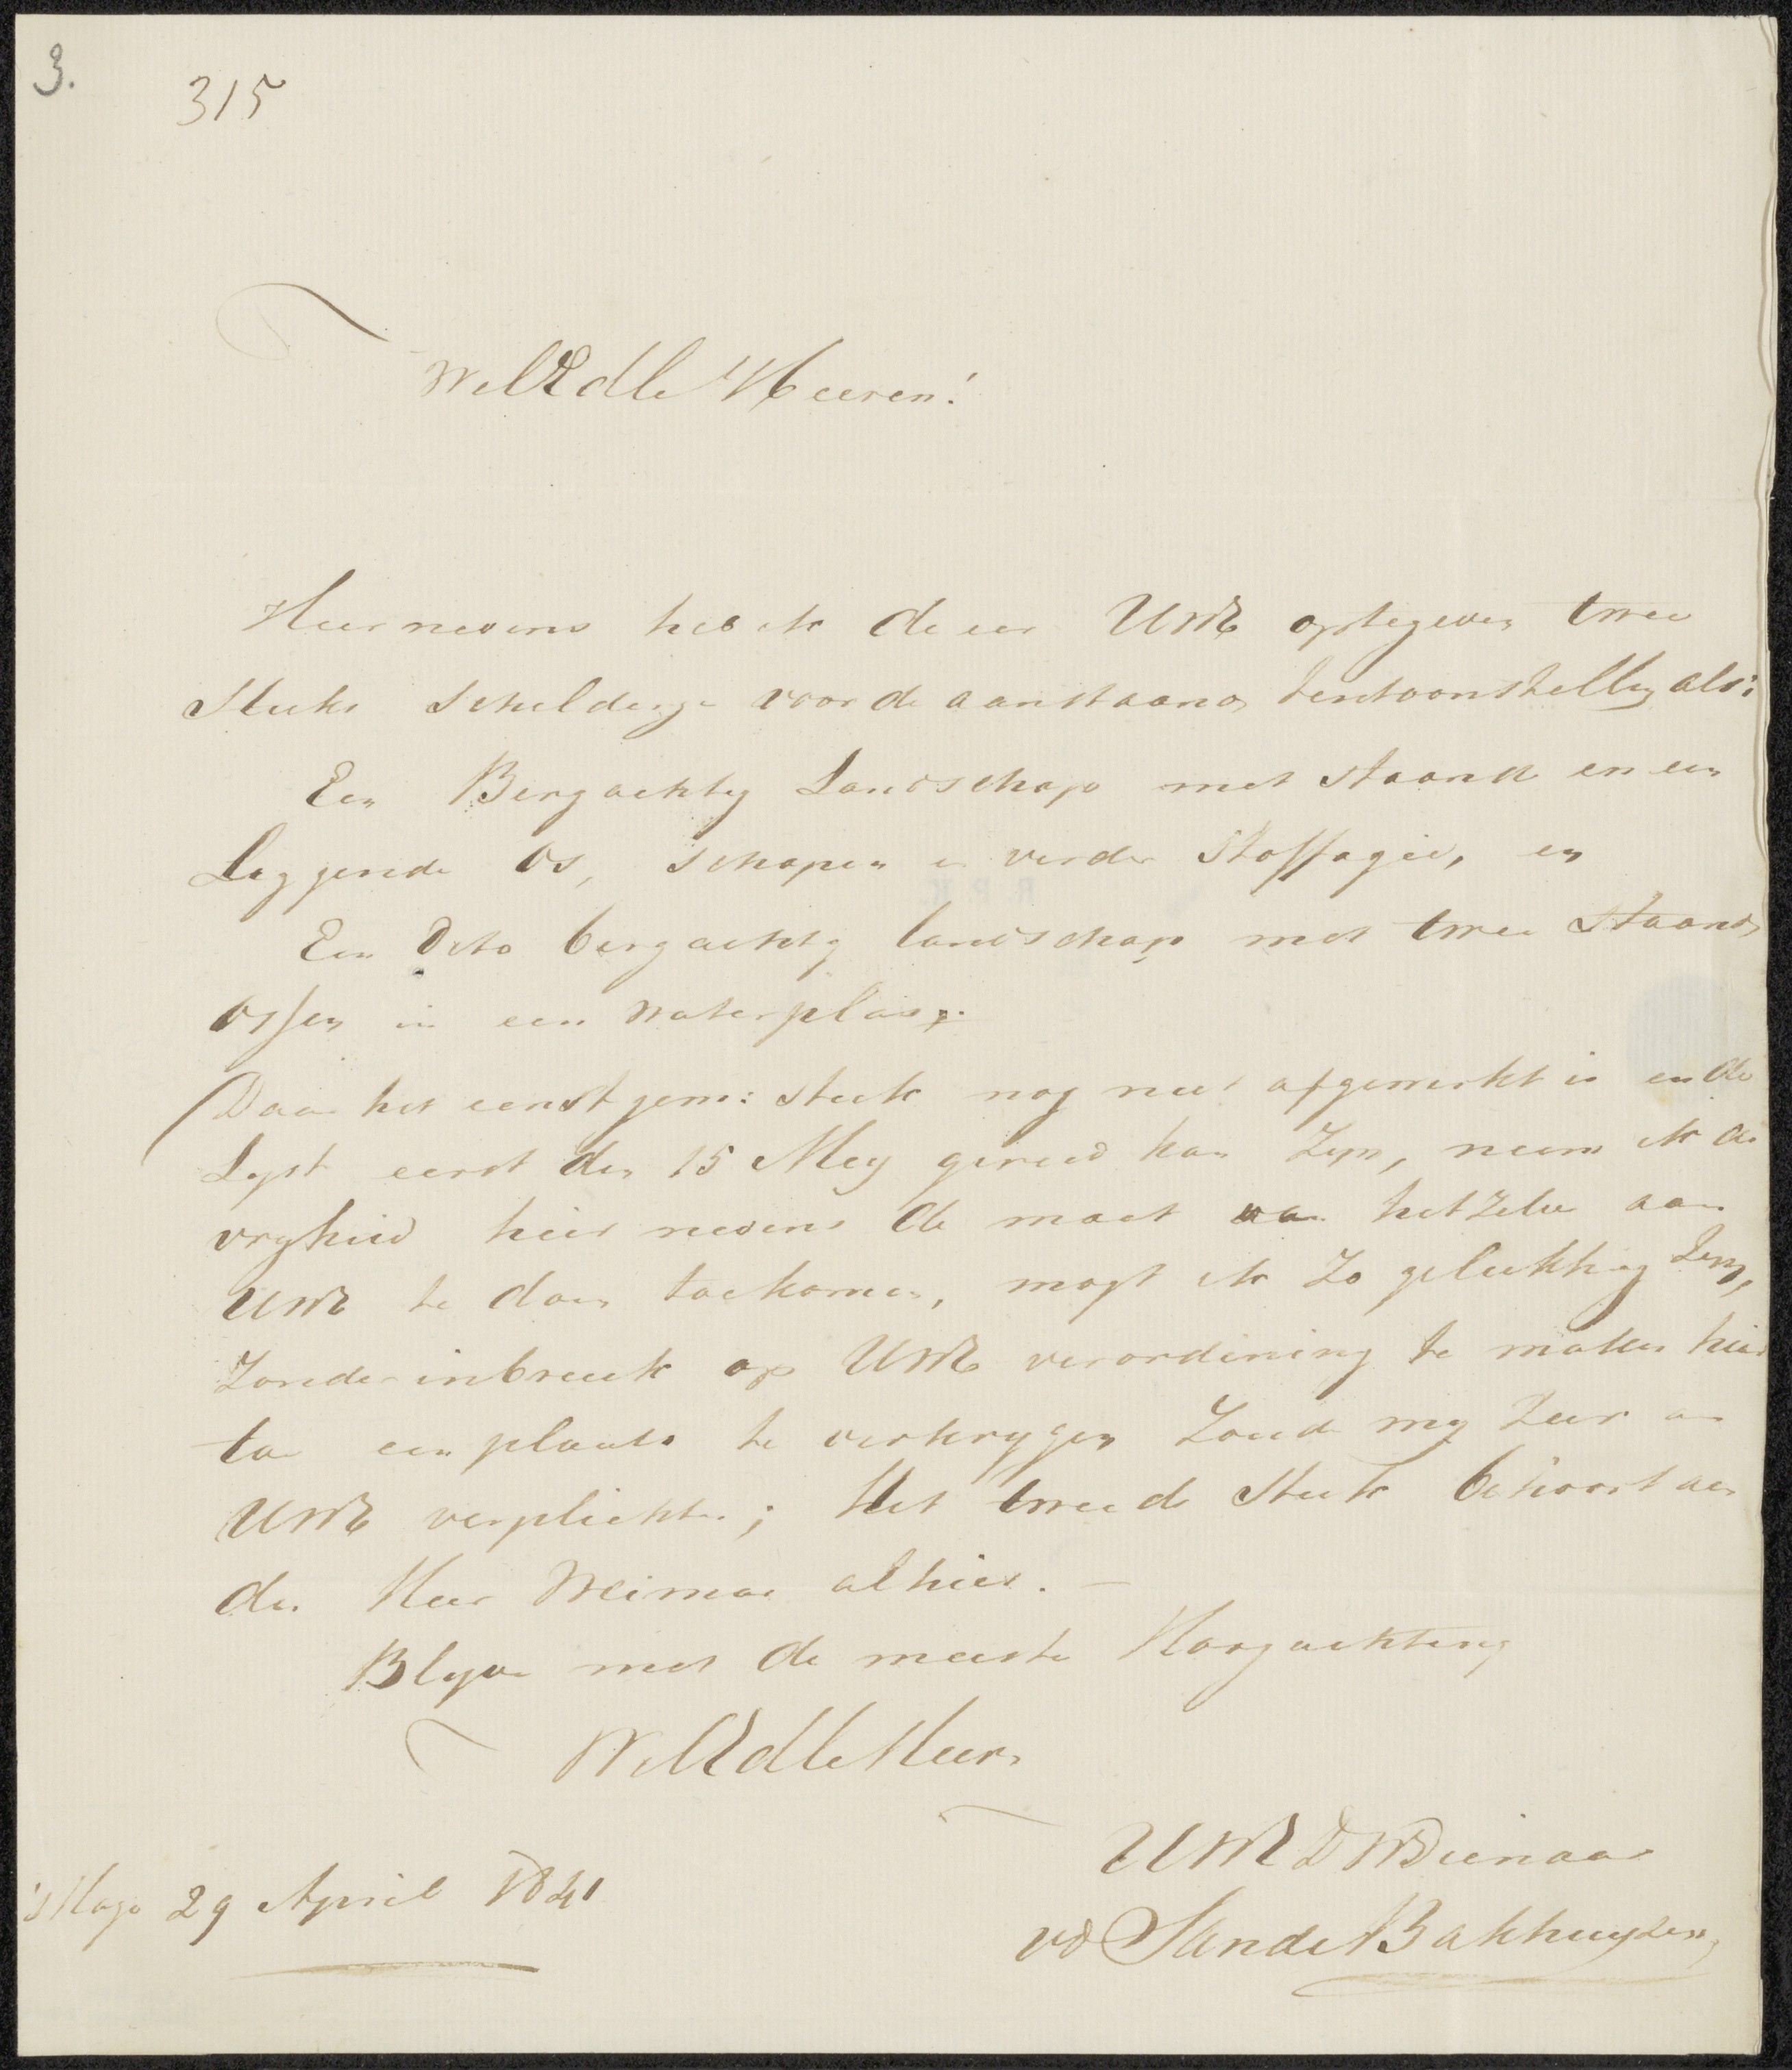 3.
315
WelEdle Heeren!
Hier nevens heb ik de eer UWE optegeven twee
Stuks Schilderye voor de aanstaande tentoonstelling als:
Een Bergachtig Landschap met staande en een
Leggende Os, Schapen en verder Stoffagie, en
Een Dito bergachtig landschap met twee staande
Ossen in een waterplas;
Daar het eerst gem: stuk nog niet afgewerkt is en de
Lyst eerst den 15 Mey gereed kan zyn, neem ik de
vryheid hier nevens de maat van hetzelve aan
UWE te doen toekomen, mogt ik zo gelukkig zyn,
zonder inbreuk op UWE verordening te maken hier
toe een plaats te verkrygen zoude my zeer aan
UWE verplichten; Het tweede stuk behoort aan
den Heer Weimar alhier. —
Blyve met de meeste Hoogachting
WelEdle Heeren
UWE DW Dienaar
vd Sande Bakhuyzen
's Hage 29 April 1841